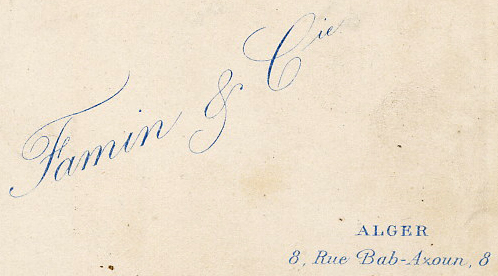 Famin & Cie
ALGER
8, Rue Bab-Azoun, 8